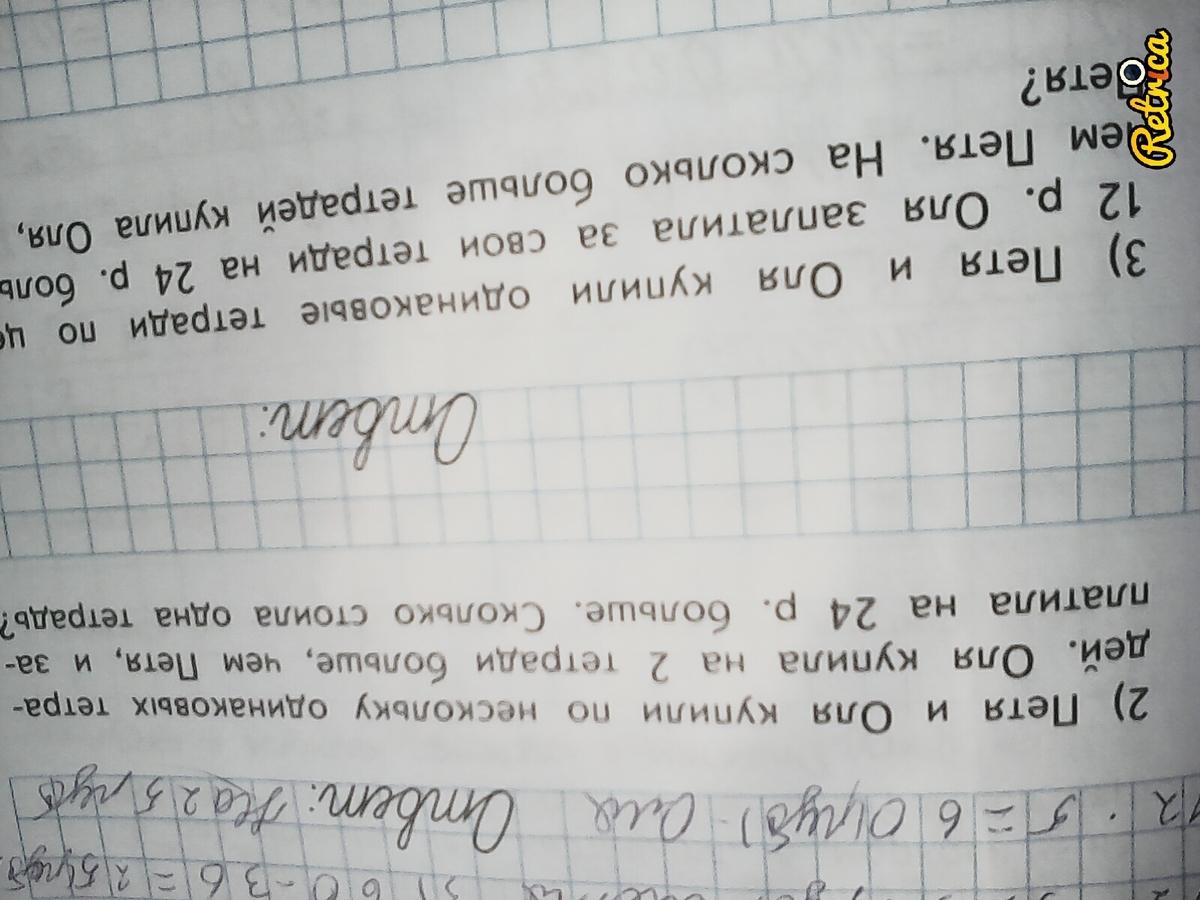 3) 60 - 36 = 25(руб)
12 · 5 = 60(руб) - Оля Ответ: на 25 руб
2) Петя и Оля купили по нескольку одинаковых тетра-
дей. Оля купила на 2 тетради больше, чем Петя, и за-
платила на 24 р. больше. Сколько стоила одна тетрадь?
Ответ:
3) Петя и Оля купили одинаковые тетради по це
12 р. Оля заплатила за свои тетради на 24 р. боль
чем Петя. На сколько больше тетрадей купила Оля,
Петя?
Retrica